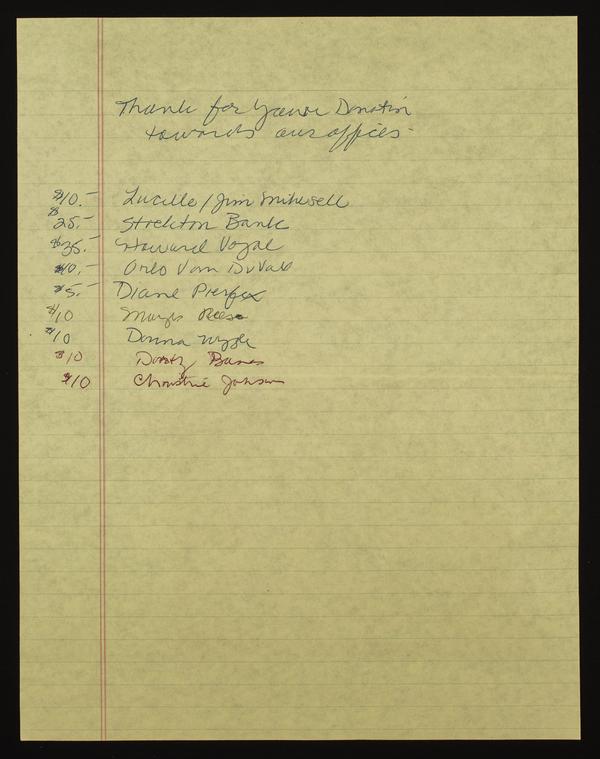 Thank for your Donation
towards our offices-
$10.- Lucille / Jim Mikesell
$25.- Stockton Bank
$35.- Howard Vogal
$10.- Orlo Van DuVall
$5.- Diane
$10 Reese
$10 Donna
$10 Dusty
$10 Christine Johnson